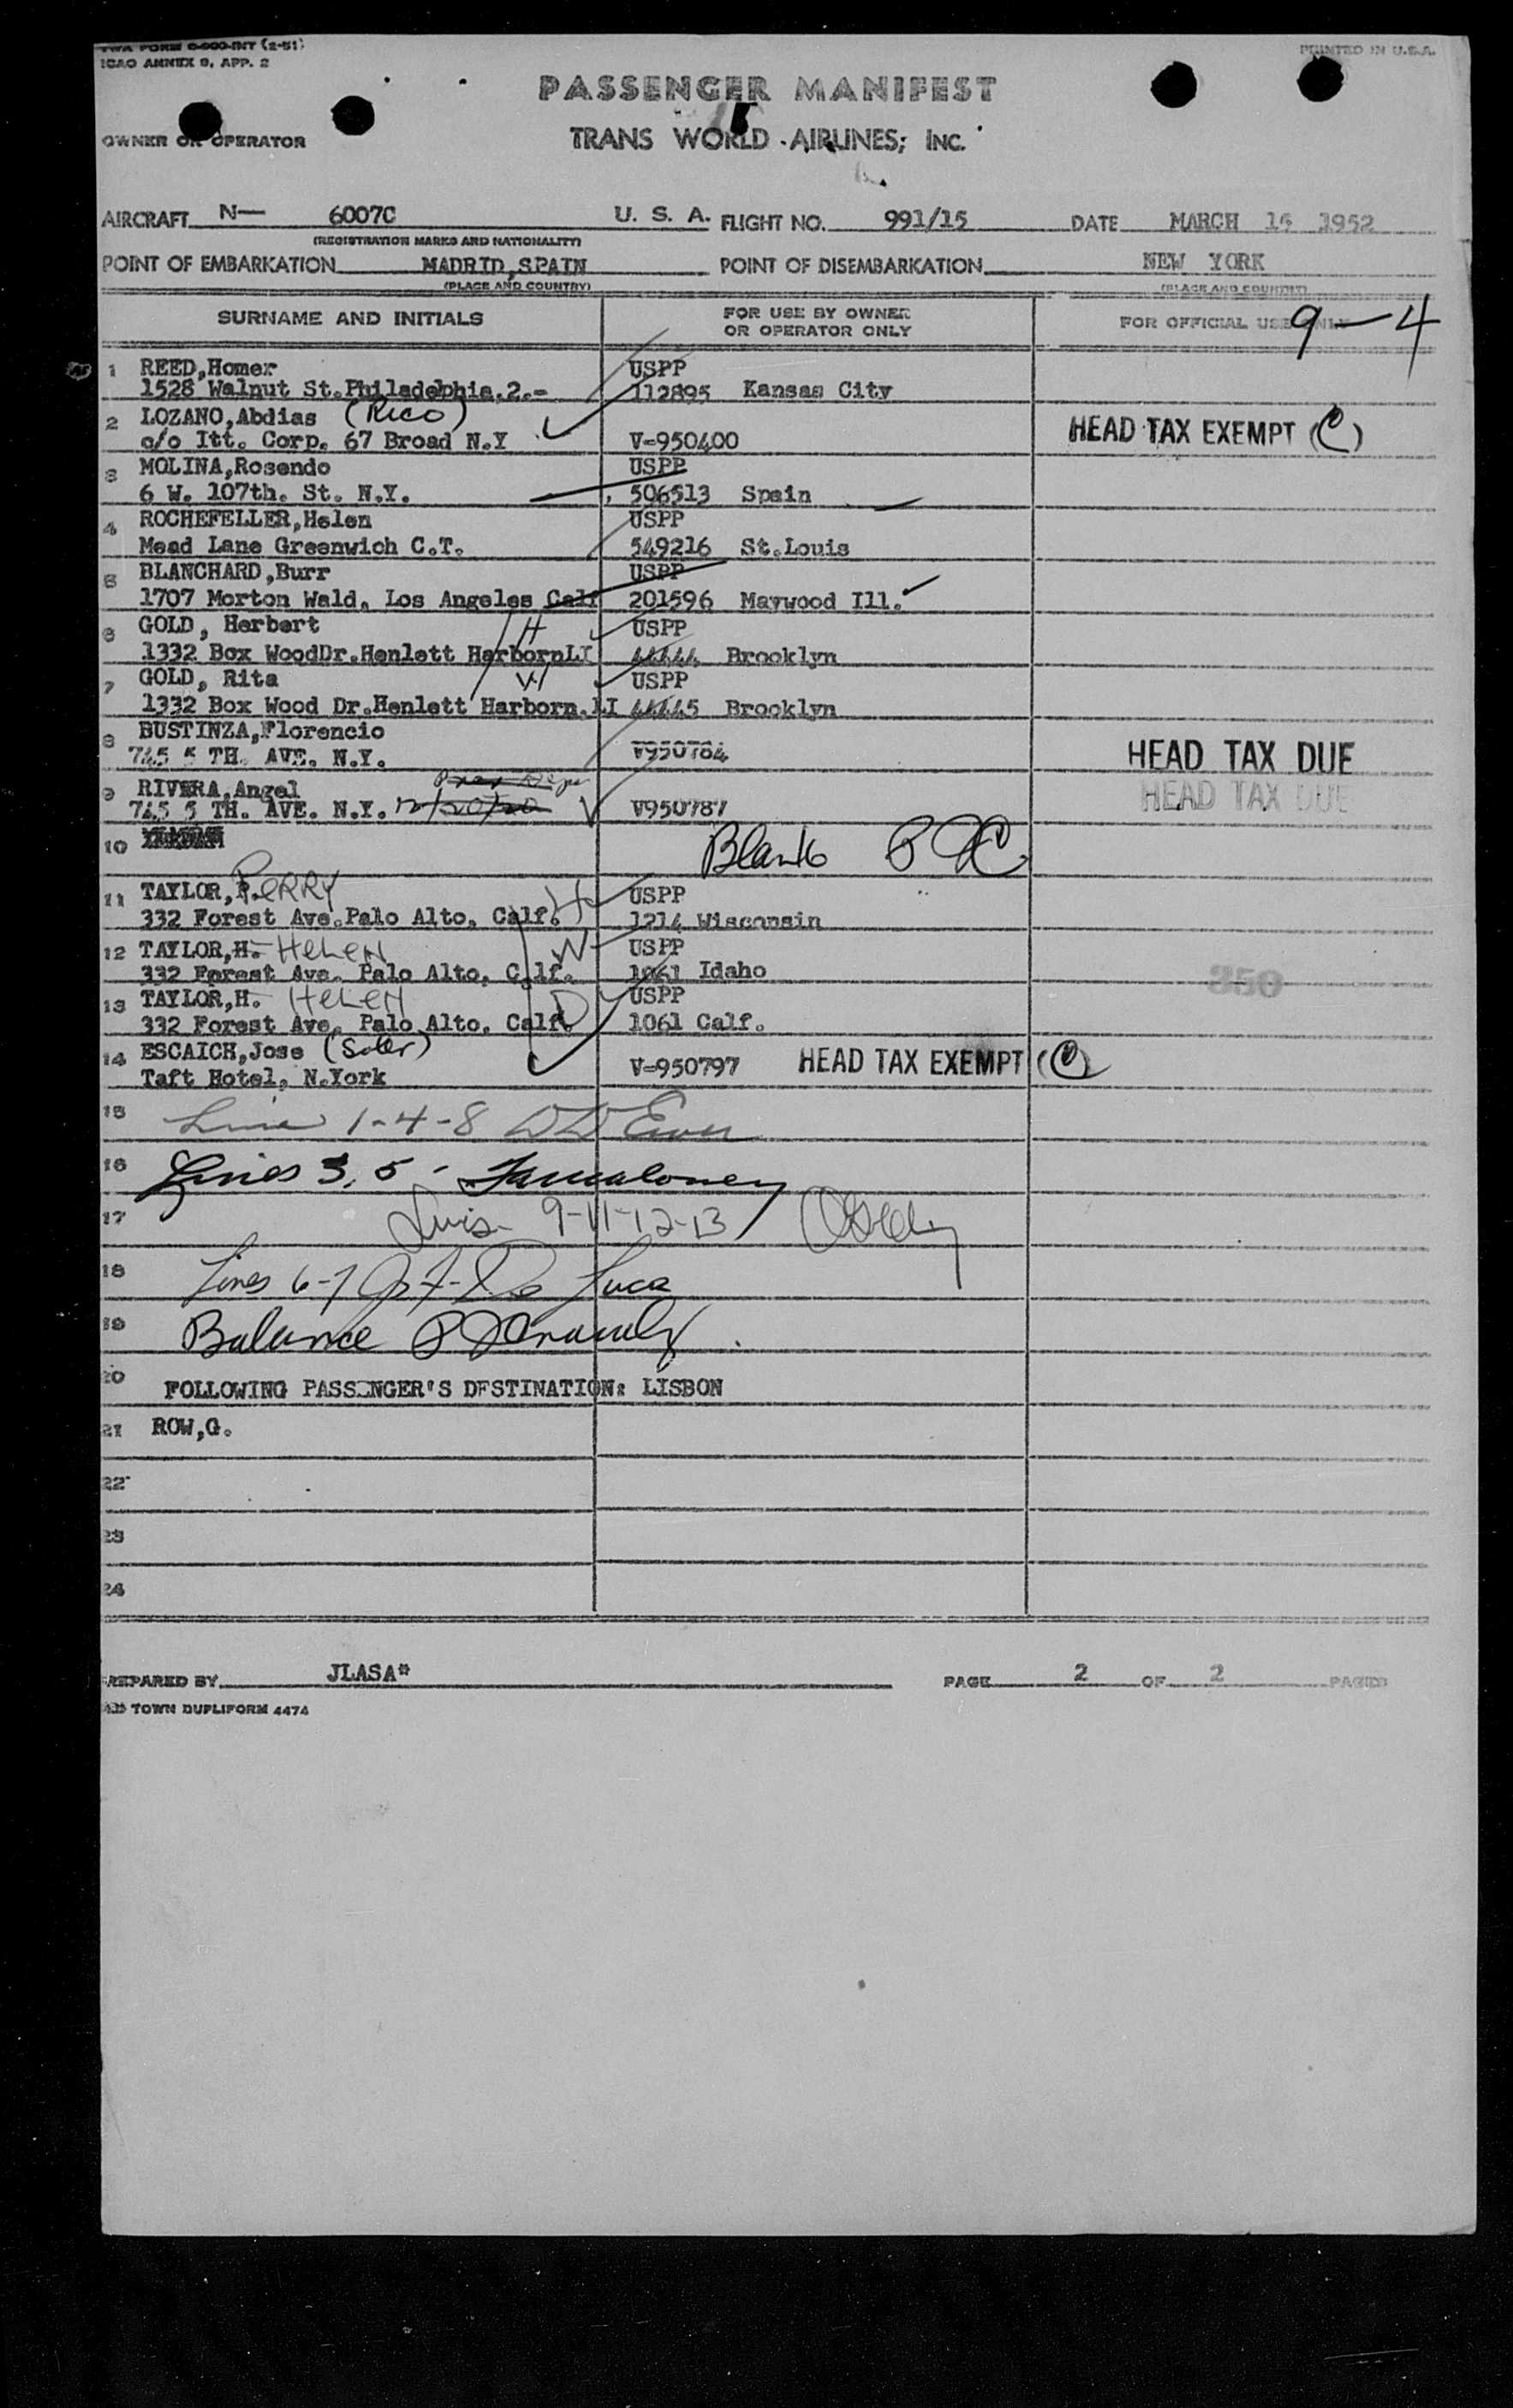 TWA FORM 0-900-INT (2-51)
ICAO ANNEX 9, APP. 2
PRINTED IN U.S.A.
PASSENGER MANIFEST
OWNER OR OPERATOR
TRANS WORLD AIRLINES, INC.
AIRCRAFT N— 6007C U. S. A. FLIGHT NO. 991/15 DATE MARCH 1952
(REGISTRATION MARKS AND NATIONALITY)
POINT OF EMBARKATION MADRID,SPAIN POINT OF DISEMBARKATION NEW YORK
(PLACE AND COUNTRY) (PLACE AND COUNTRY)
SURNAME AND INITIALS FOR USE BY OWNER OR OPERATOR ONLY FOR OFFICIAL USE ONLY 9-4
1 REED,Homer USPP
1528 Walnut St.Philadelphia.2.- 112895 Kansas City
2 LOZANO,Abdias (Rico)
c/o Itt. Corp. 67 Broad N.Y V-950400 HEAD TAX EXEMPT (C)
3 MOLINA,Rosendo USPP
6 W. 107th. St. N.Y. 506513 Spain
4 ROCHEFELLER,Helen USPP
Mead Lane Greenwich C.T. 549216 St.Louis
5 BLANCHARD,Burr USPP
1707 Morton Wald. Los Angeles Calf 201596 Maywood Ill.
6 GOLD, Herbert H USPP
1332 Box WoodDr.Henlett HarbornLI 44444 Brooklyn
7 GOLD, Rita W USPP
1332 Box Wood Dr.Henlett Harborn.LI 44445 Brooklyn
8 BUSTINZA,Florencio
745 5 TH. AVE. N.Y. V950784 HEAD TAX DUE
9 RIVERA,Angel HEAD TAX DUE
745 5 TH. AVE. N.Y. V950787
10 Blank PJC
11 TAYLOR,P. PERRY H USPP
332 Forest Ave.Palo Alto, Calf. 1214 Wisconsin
12 TAYLOR,H. HELEN W USPP
332 Forest Ave. Palo Alto, Calf. 1061 Idaho
350
13 TAYLOR,H. HELEN D USPP
332 Forest Ave. Palo Alto, Calf. 1061 Calf.
14 ESCAICH,Jose (Soler)
Taft Hotel, N.York V-950797 HEAD TAX EXEMPT (C)
15 Line 1-4-8
16 Lines 3, 5 -
17 9-11-12-13
18 Lines 6-7 De Luca
19 Balance
20 FOLLOWING PASSENGER'S DESTINATION: LISBON
21 ROW,G.
22
23
24
PREPARED BY JLASA* PAGE 2 OF 2 PAGES
TOWN DUPLIFORM 4474